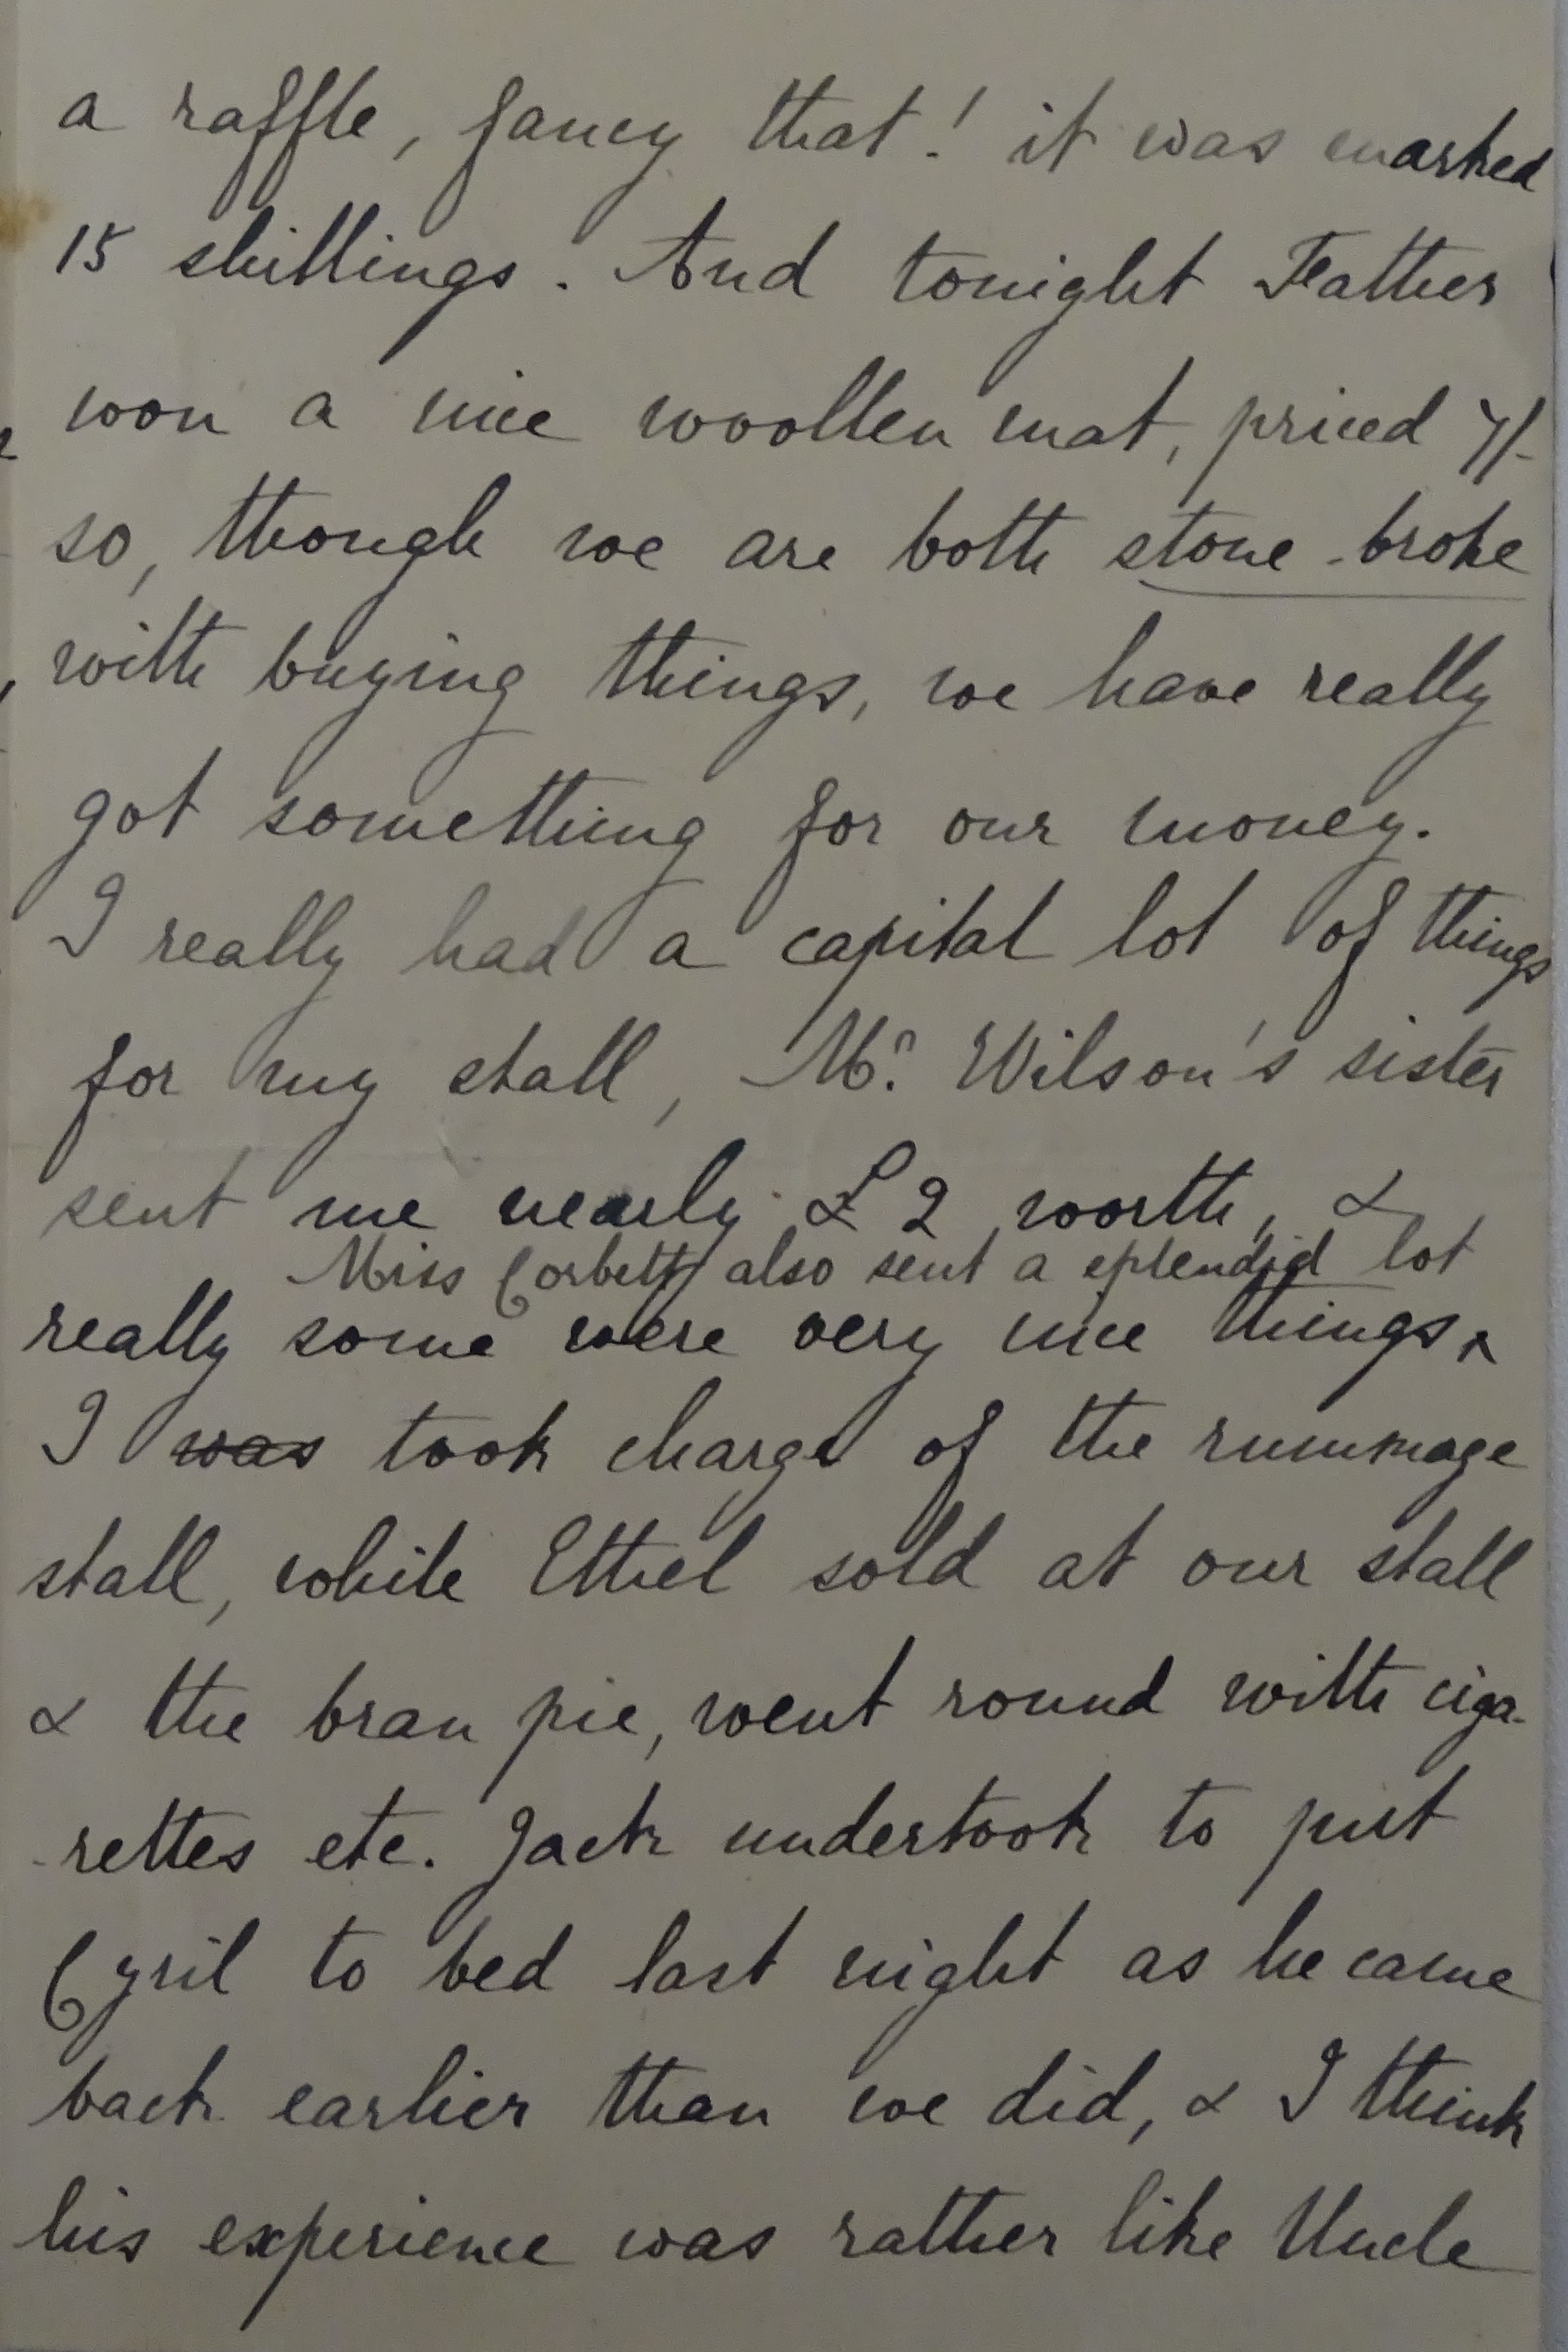 a raffle, fancy that! it was marked
15 shillings. And tonight Father
won a nice woollen mat, priced 7/-
so, though we are both stone-broke
with buying things, we have really
got something for our money.
I really had a capital lot of things
for my stall, Mr. Wilson's sister
sent me nearly £2 worth, &
Miss Corbett also sent a splendid lot
really some were very nice things ^
I was took charge of the rummage
stall, while Ethel sold at our stall
& the bran pie, went round with ciga-
-rettes etc. Jack undertook to put
Cyril to bed last night as he came
back earlier than we did, & I think
his experience was rather like Uncle